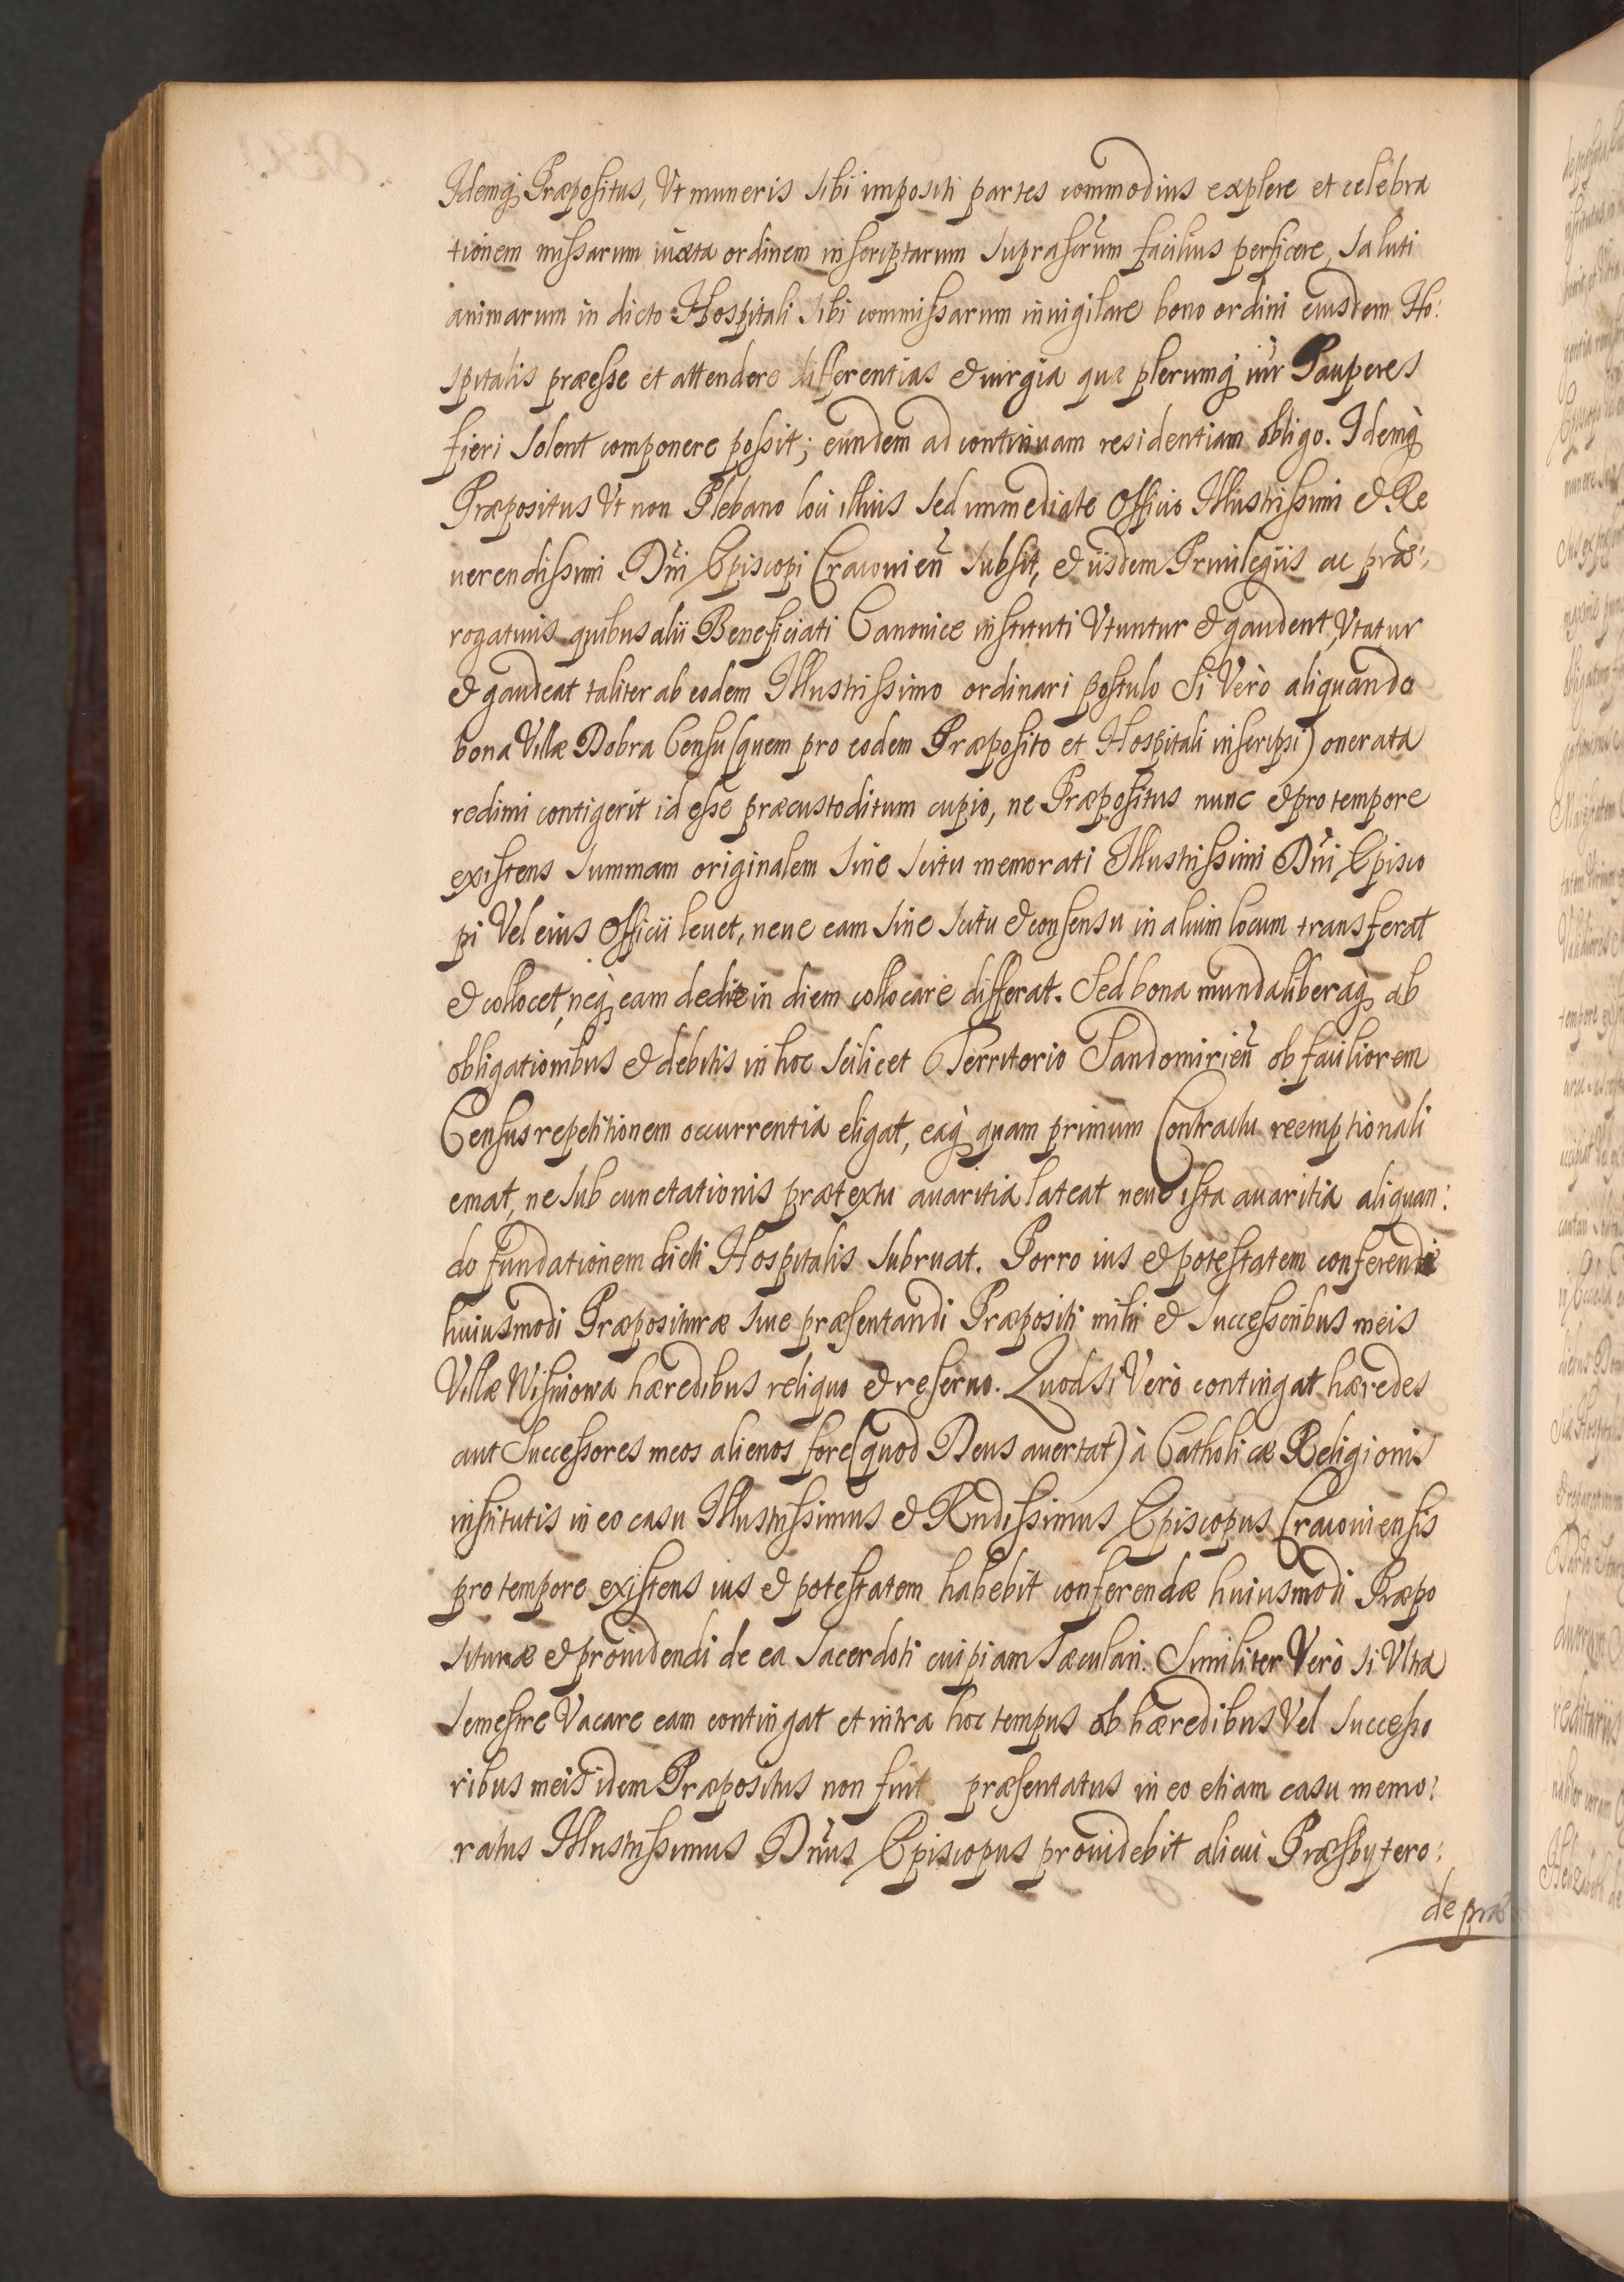 Idemq Præpositus, Vt muneris sibi impositi partes commodius explere et celebra
tionem missarum iuxta ordinem inscriptarum suprascrum facilius perficere, saluti
animarum in dicto Hospitali sibi commissarum inuigilare bono ordini eiusdem Ho:
spitalis præesse et attendere differentias & iurgia quæ plerumq inr Pauperes
fieri solent componere possit; eundem ad continuam residentiam obligo. Idemq
Præpositus Vt non Plebano loci illius sed immediate Officio Illustrissimi & Re
uerendissimi Dñi Episcopi Cracouien subsit, & iisdem Priuilegiis ac præ:
rogatiuis quibus alii Beneficiati Canonice instituti Vtuntur & gaudent, Vtatur
& gaudeat taliter ab eodem Illustrissimo ordinari postulo Si Verò aliquando
bona Villæ Dobra Censu (quem pro eodem Præposito et Hospitali inscripsi) onerata
redimi contigerit id esse præcustoditum cupio, ne Præpositus nunc & pro tempore
existens summam originalem sine scitu memorati Illustrissimi Dñi Episco
pi Vel eius Officii leuet, neue eam sine scitu & consensu in alium locum transferat
& collocet, neq eam de die in diem collocare differat. Sed bona munda liberaq ab
obligationibus & debitis in hoc scilicet Territorio Sandomirien ob faciliorem
Census repetitionem occurrentia eligat, eaq quam primum Contractu reemptionali
emat, ne sub cunctationis prætextu auaritia lateat neue ista auaritia aliquan:
do fundationem dicti Hospitalis subruat. Porro ius & potestatem conferendi
huiusmodi Præposituræ siue præsentandi Præpositi mihi & successoribus meis
Villæ Wisniowa hæredibus reliquo & reseruo. Quod si Verò contingat hæredes
aut Successores meos alienos fore (quod Deus auertat) à Catholicæ Religionis
institutis in eo casu Illustrissimus & Rndissimus Episcopus Cracouiensis
pro tempore existens ius & potestatem habebit conferendæ huiusmodi Præpo
situræ & prouidendi de ea sacerdoti cuipiam sæculari. Similiter Verò si Vltra
semestre Vacare eam contingat et intra hoc tempus ob hæredibus Vel successo
ribus meis idem Præpositus non fuit præsentatus in eo etiam casu memo:
ratus Illustrissimus Dñus Episcopus prouidebit alicui Præsbytero:
de præ